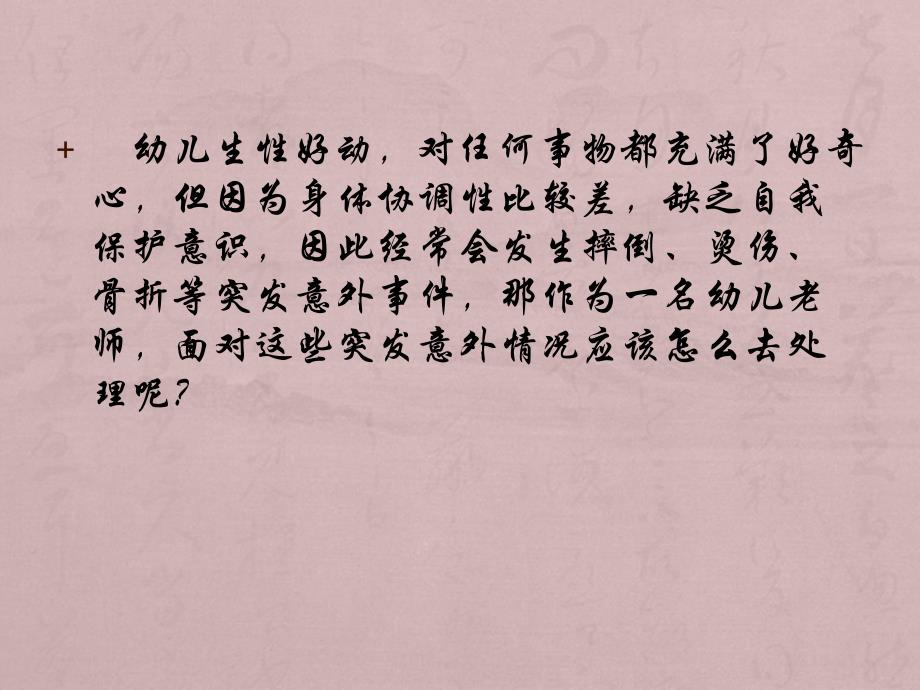 + 幼儿生性好动，对任何事物都充满了好奇
心，但因为身体协调性比较差，缺乏自我
保护意识，因此经常会发生摔倒、烫伤、
骨折等突发意外事件，那作为一名幼儿老
师，面对这些突发意外情况应该怎么去处
理呢？